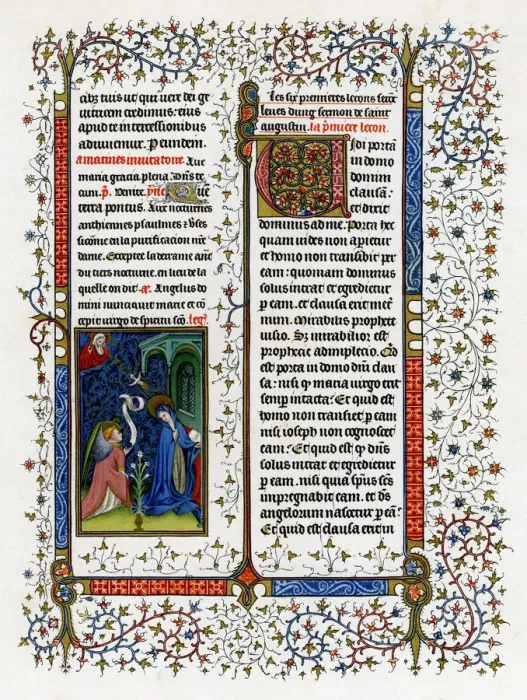 cibz tuis ut qui uere dei ge
nitricem credimus: eius
apud te intercessionibus
adiuuemur. P eundem.
a matines inuitatoire. Aue
maria gracia plena dñs te
cum. p̃. Venite. ymẽ. Que
terra pontus. Aux nocturnes
anthiennes psaulmes z v̄ses
sicõme en la purificacion nr̃e
dame. Excepte la derraine añe
du tiers nocturne. en lieu de la
quelle on dit. añ. Angelus do
mini nunciauit marie et cõ
cepit uirgo de spiritu scõ. leçõ.
Les six premieres lecons sont
leues dung sermon de saint
augustin. la p̃miere lecon.
Uidi portã
in domo
domini
clausã:
et dixit
dominus ad me. porta hec
quam uides non aperietur
et homo non transibit per
eam: quoniam dominus
solus intrat et egredietur
p eam. et clausa erit inet̃
num. Mirabilis prophete
uisio. Sz mirabilior est
prophetie adimplecio. Qd
est porta in domo dñi clau
sa: nisi q maria uirgo erit
semp intacta: Et quid est
homo non transiet p eam
nisi ioseph non cognoscet
eam: Et quid est q dñs
solus intrat et egredietur
p eam. nisi quia sp̃us sc̃s
impregnabit eam. et dñs
angelorum nascetur p eã:
Et quid est clausa erit in